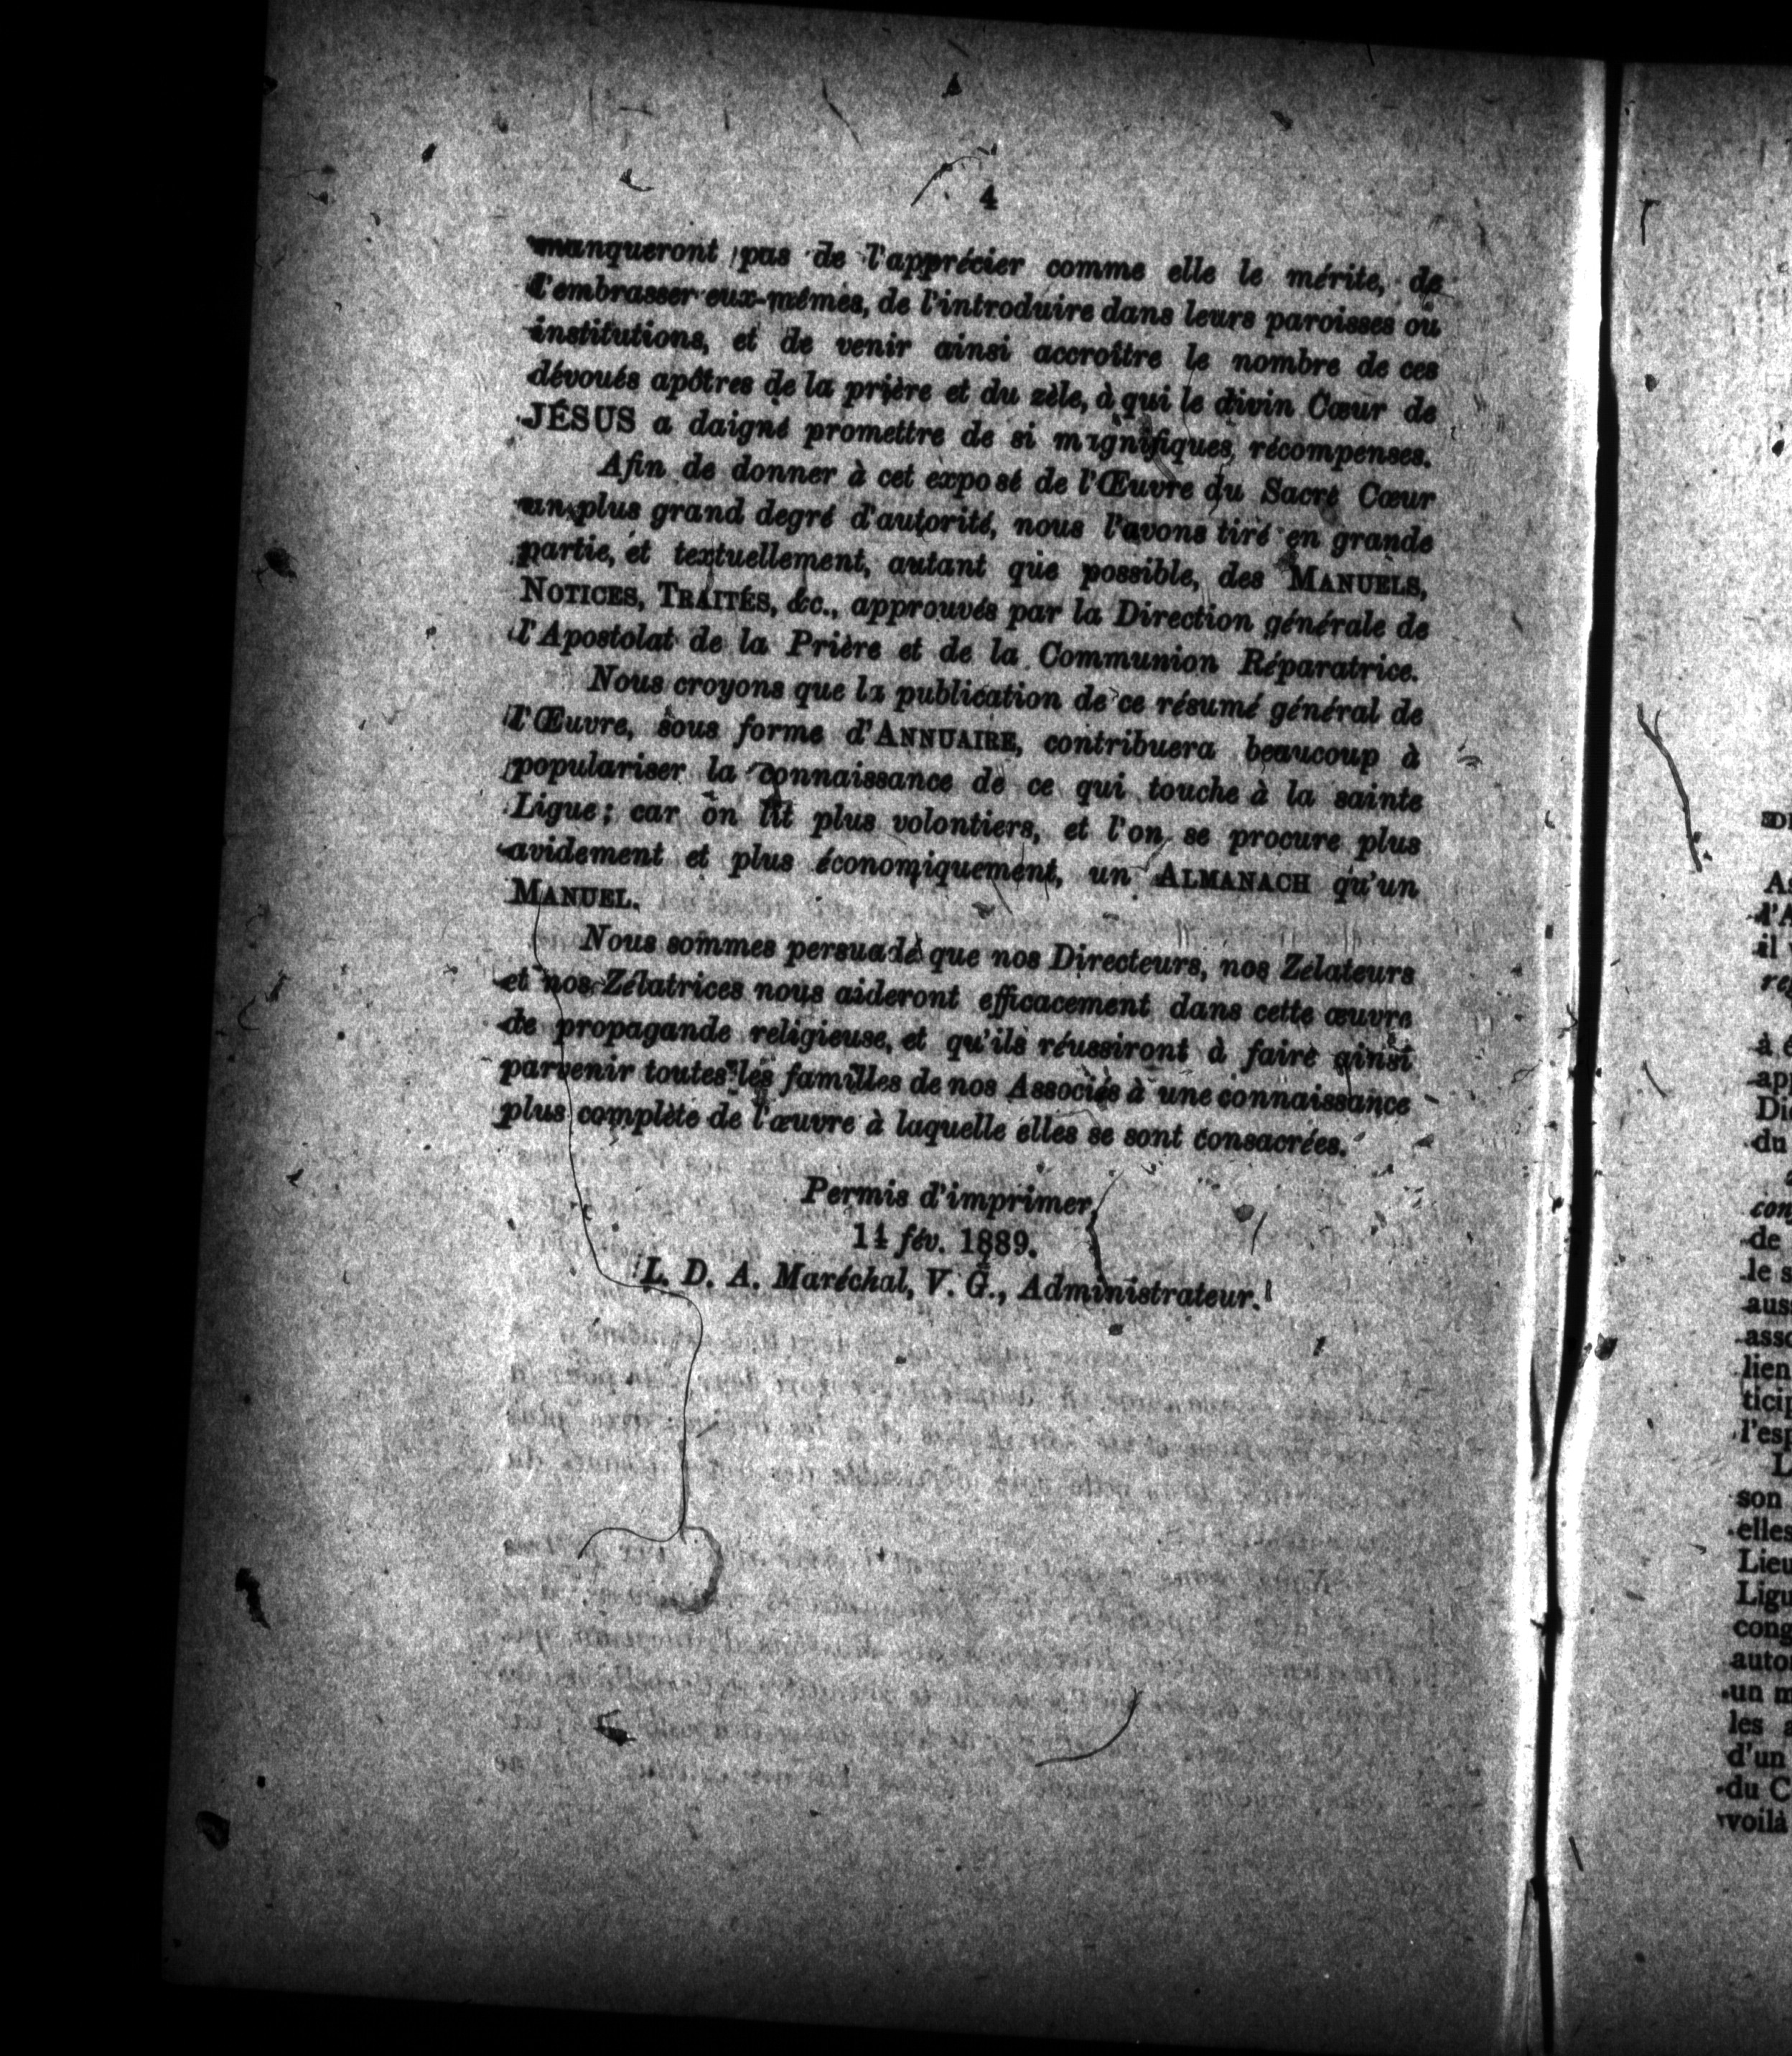 4
manqueront pas de l'apprécier comme elle le mérite, de
l'embrasser eux-mêmes, de l'introduire dans leurs paroisses ou
institutions, et de venir ainsi accroître le nombre de ces
dévoués apôtres de la prière et du zèle, à qui le divin Cœur de
JÉSUS a daigné promettre de si magnifiques récompenses.
Afin de donner à cet exposé de l'Œuvre du Sacré Cœur
un plus grand degré d'autorité, nous l'avons tiré en grande
partie, et textuellement, autant que possible, des MANUELS,
NOTICES, TRAITÉS, &c., approuvés par la Direction générale de
l'Apostolat de la Prière et de la Communion Réparatrice.
Nous croyons que la publication de ce résumé général de
l'Œuvre, sous forme d'ANNUAIRE, contribuera beaucoup à
populariser la connaissance de ce qui touche à la sainte
Ligue; car on lit plus volontiers, et l'on se procure plus
avidement et plus économiquement, un ALMANACH qu'un
MANUEL.
Nous sommes persuadé que nos Directeurs, nos Zélateurs
et nos Zélatrices nous aideront efficacement dans cette œuvre
de propagande religieuse, et qu'ils réussiront à faire ainsi
parvenir toutes les familles de nos Associés à une connaissance
plus complète de l'œuvre à laquelle elles se sont consacrées.
Permis d'imprimer,
14 fév. 1889.
L. D. A. Maréchal, V. G., Administrateur.
il
à
Di
du
de
le s
lien
son
elles
les
d'un
du C
voilà